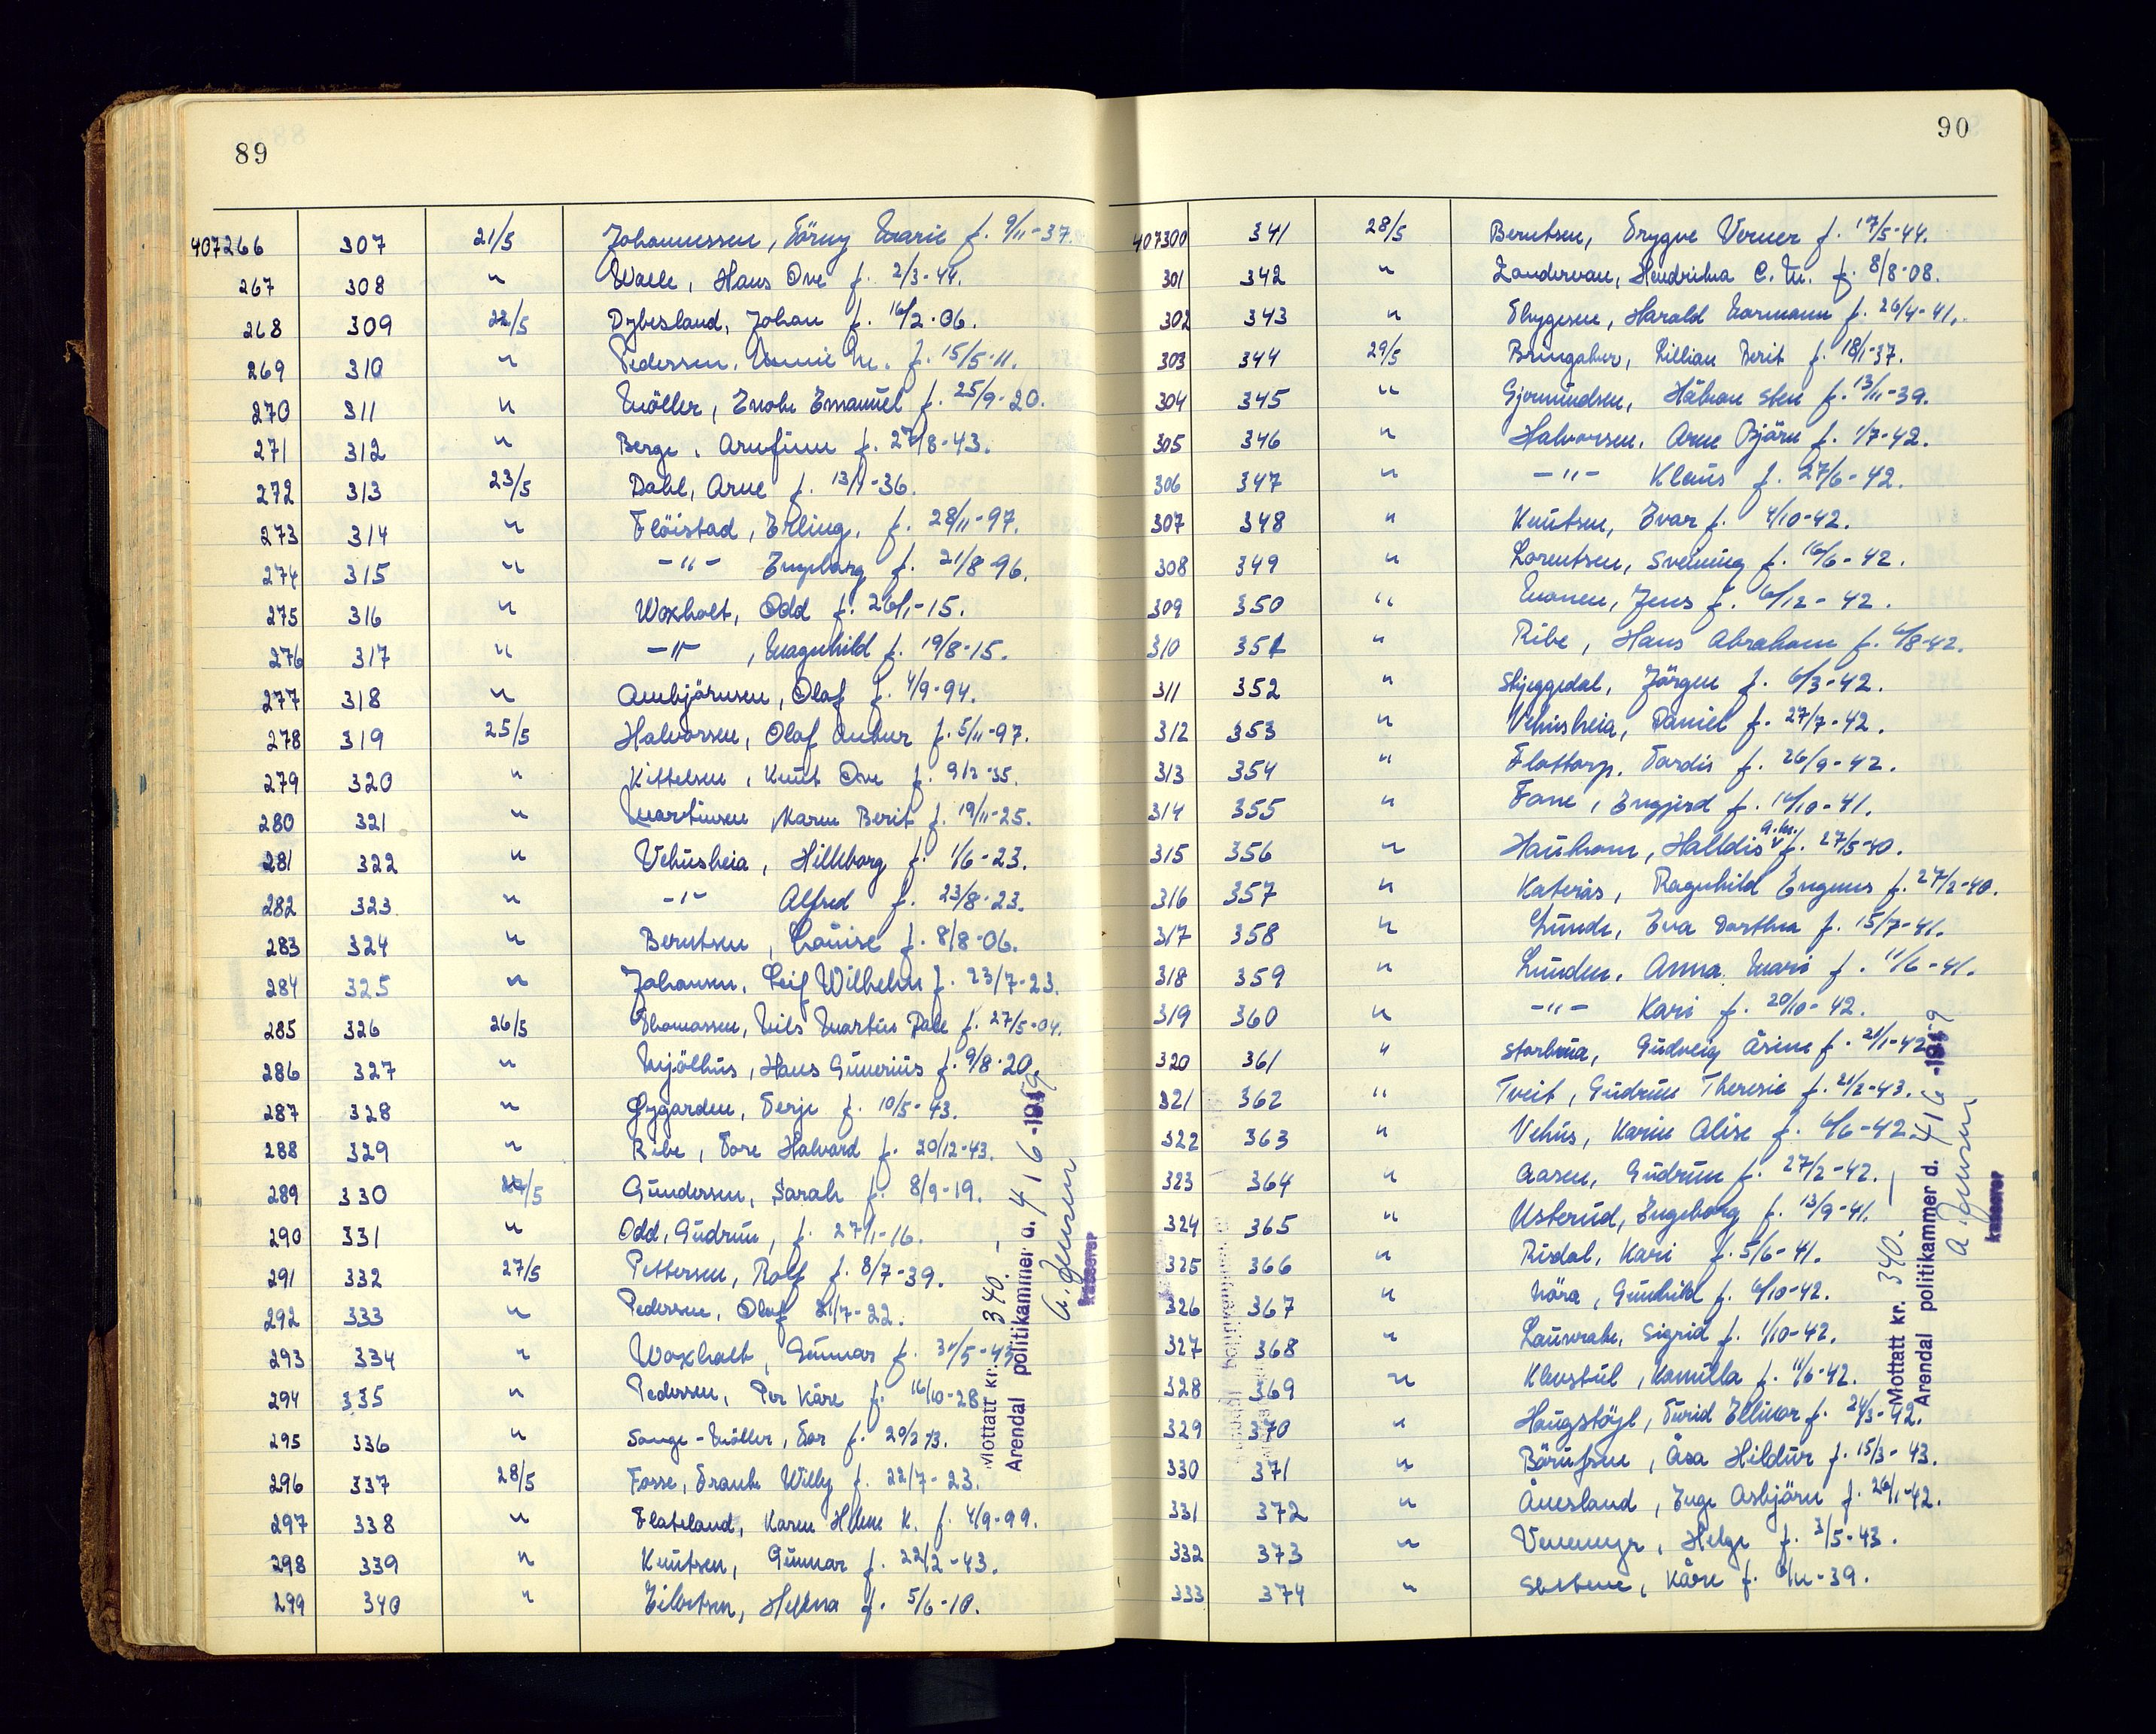 89
407266 307 21/5 Johannessen, Törny Marie f. 9/11-37.
267 308 " Walle, Hans Ove f. 2/3-44.
268 309 22/5 Dybesland, Johan f. 16/2-06.
269 310 " Pedersen, M. f. 15/5-11.
270 311 " Möller, Enok Emanuel f. 25/9-20.
271 312 " Berge, Arnfinn f. 27/8-43.
272 313 23/5 Dahl, Arne f. 13/1-36.
273 314 " Flöistad, Erling, f. 28/11-97.
274 315 " -"- Engeborg f. 21/8-96.
275 316 " Woxholt, Odd f. 26/1-15.
276 317 " -"-, Magnhild f. 19/8-15.
277 318 " Ambjörnsen, Olaf f. 4/9-94.
278 319 25/5 Halvorsen, Olaf Ankur f. 5/11-97.
279 320 " Kittelsen, Knut Ove f. 9/2-35.
280 321 " Martinsen, Karen Berit f. 19/11-25.
281 322 " Vehusheia, Hilleborg f. 1/6-23.
282 323 " -"- Alfred f. 23/8-23.
283 324 " Berntsen, Louise f. 8/8-06.
284 325 " Johansen, Leif Wilhelm f. 23/7-23.
285 326 26/5 Thomassen, Nils Martin Dale f. 27/5-04.
286 327 " Mjölhus, Hans Gunerius f. 9/8-20.
287 328 " Lygarden, Terje f. 10/5-43.
288 329 " Ribe, Tore Halvard f. 20/12-43.
289 330 /5 Gundersen, Sarah f. 8/9-19.
290 331 " Odd, Gudrun, f. 27/1-16.
291 332 27/5 Pettersen, Rolf f. 8/7-39.
292 333 " Pedersen, Olaf 21/7-22.
293 334 " Woxholt, Gunnar f. 31/5-43
294 335 " Pedersen, Per Kåre f. 16/10-28
295 336 " Sange-Möller, Tor f. 20/2 43.
296 337 28/5 Fosse, Frank Willy f. 22/7-23.
297 338 " Flateland, Karen Helene K. f. 4/9-99.
298 339 " Knutsen, Gunnar f. 22/2-43.
299 340 " Eilertsen, Helena f. 5/6-10.
Mottatt kr. 340.-
Arendal politikammer d. 4/6-1959
A. Jensen
kasserer
90
407300 341 28/5 Berntsen, Trygve Verner f. 17/5-44.
301 342 " Zondervan, Hendrika C. M. f. 8/8-08.
302 343 " Thygesen, Harald Normann f. 26/4-41.
303 344 29/5 Bringaker, Lillian Berit f. 18/1-37.
304 345 " Gjermundsen, Håkon Sten f. 13/11-39.
305 346 " Halvorsen, Arne Björn f. 1/7-42.
306 347 " -"- Klaus f. 27/6-42.
307 348 " Knutsen, Ivar f. 4/10-42.
308 349 " Lorentsen, Sveinung f. 16/6-42.
309 350 " Monen, Jens f. 6/12-42.
310 351 " Ribe, Hans Abraham f. 6/8-42.
311 352 " Skjeggedal, Jörgen f. 6/3-42.
312 353 " Vehusheia, Daniel f. 27/7-42.
313 354 " Flottorp, Tordis f. 26/9-42.
314 355 " Fone, Engjerd f. 16/10-41.
315 356 " Haukom, Halldis A.M. f. 27/5-40.
316 357 " Kateràs, Ragnhild Engnes f. 27/2-40.
317 358 " Lunde, Eva Dorthea f. 15/7-41.
318 359 " Lunden, Anna Mari f. 11/6-41.
319 360 " -"- Kari f. 20/10-42.
320 361 " Gudveig Åsine f. 21/1-42
321 362 " Tveit, Gudrun Theresie f. 21/2-43.
322 363 " Vehus, Karin Alise f. 6/6-42.
323 364 " Aasen, Gudrun f. 27/2-42.
324 365 " Usterud, Ingeborg f. 13/9-41.
325 366 " Risdal, Kari f. 5/6-41.
326 367 " Möra, Gunhild f. 6/10-42.
327 368 " Lauvrak, Sigrid f. 1/10-42.
328 369 " Klevstul, Kamilla f. 11/6-42.
329 370 " Haugstöyl, Turid Ellinor f. 24/3-42.
330 371 " Börufsen, Åsa Hildur f. 15/3-43.
331 372 " Ånesland, Inge Asbjörn f. 26/1-42.
332 373 " Venemyr, Helge f. 3/5-43.
333 374 " Kåre f. -39.
Mottatt kr. 340.-
Arendal politikammer d. 4/6-1959
A. Jensen
kasserer